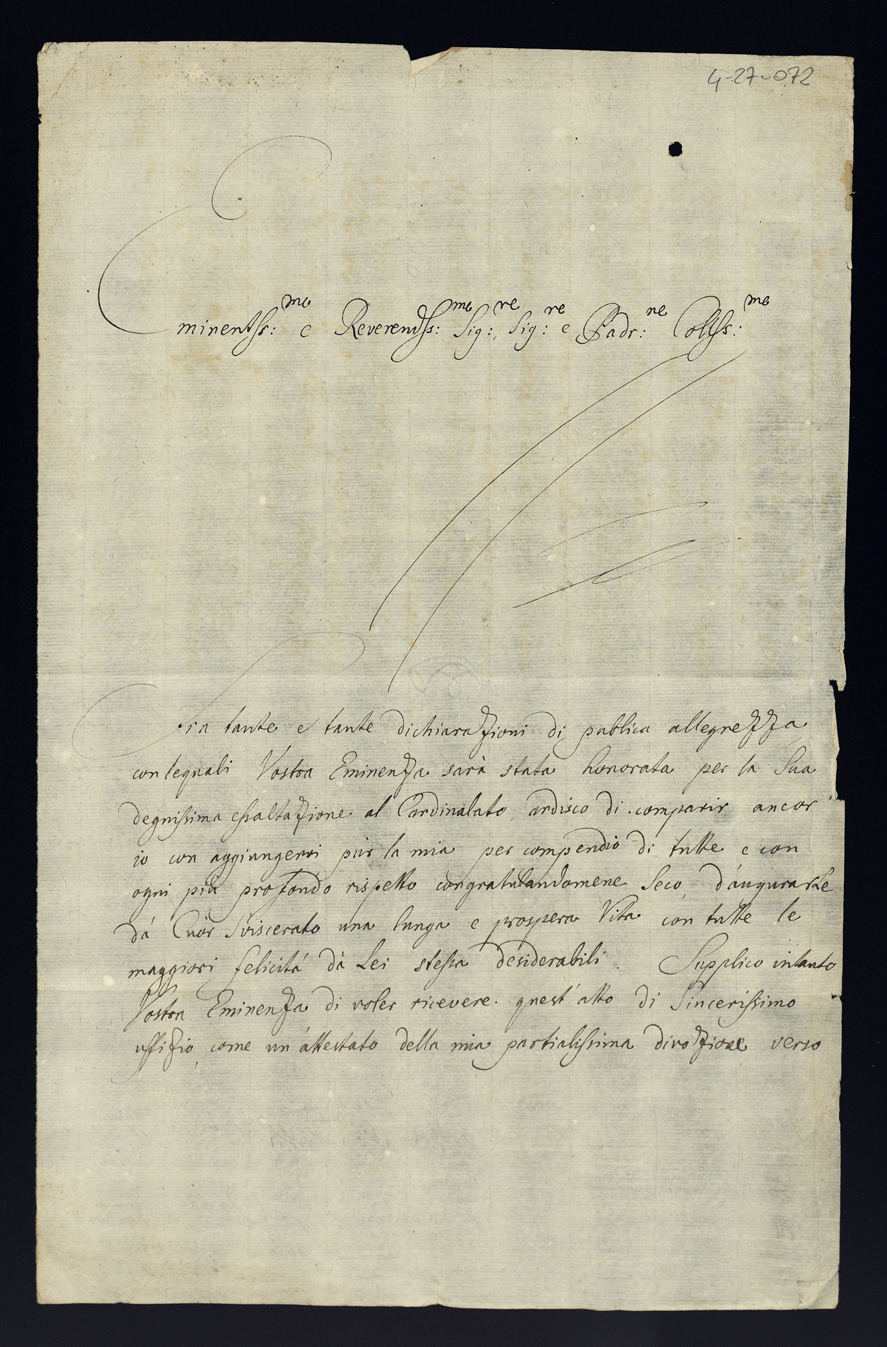 4-27-072
Eminentiss:mo e Reverendiss:mo Sig:re, Sig:re e Padr:ne Colls:mo
Fra tante e tante dichiarazioni di publica allegrezza
con lequali Vostra Eminenza sarà stata honorata per la Sua
degnissima essaltazione al Cardinalato, ardisco di comparir ancor
io con aggiungervi pur la mia per compendio di tutte e con
ogni più profondo rispetto congratulandomene Seco d'augurarLe
dá Cuór Sviscerato una lunga e prospera Vita con tutte le
maggiori felicitá dá Lei stessa desiderabili. Supplico intanto
Vostra Eminenza di voler ricevere quest'atto di Sincerissimo
uffizio, come un'attestato della mia partialissima divozione verso